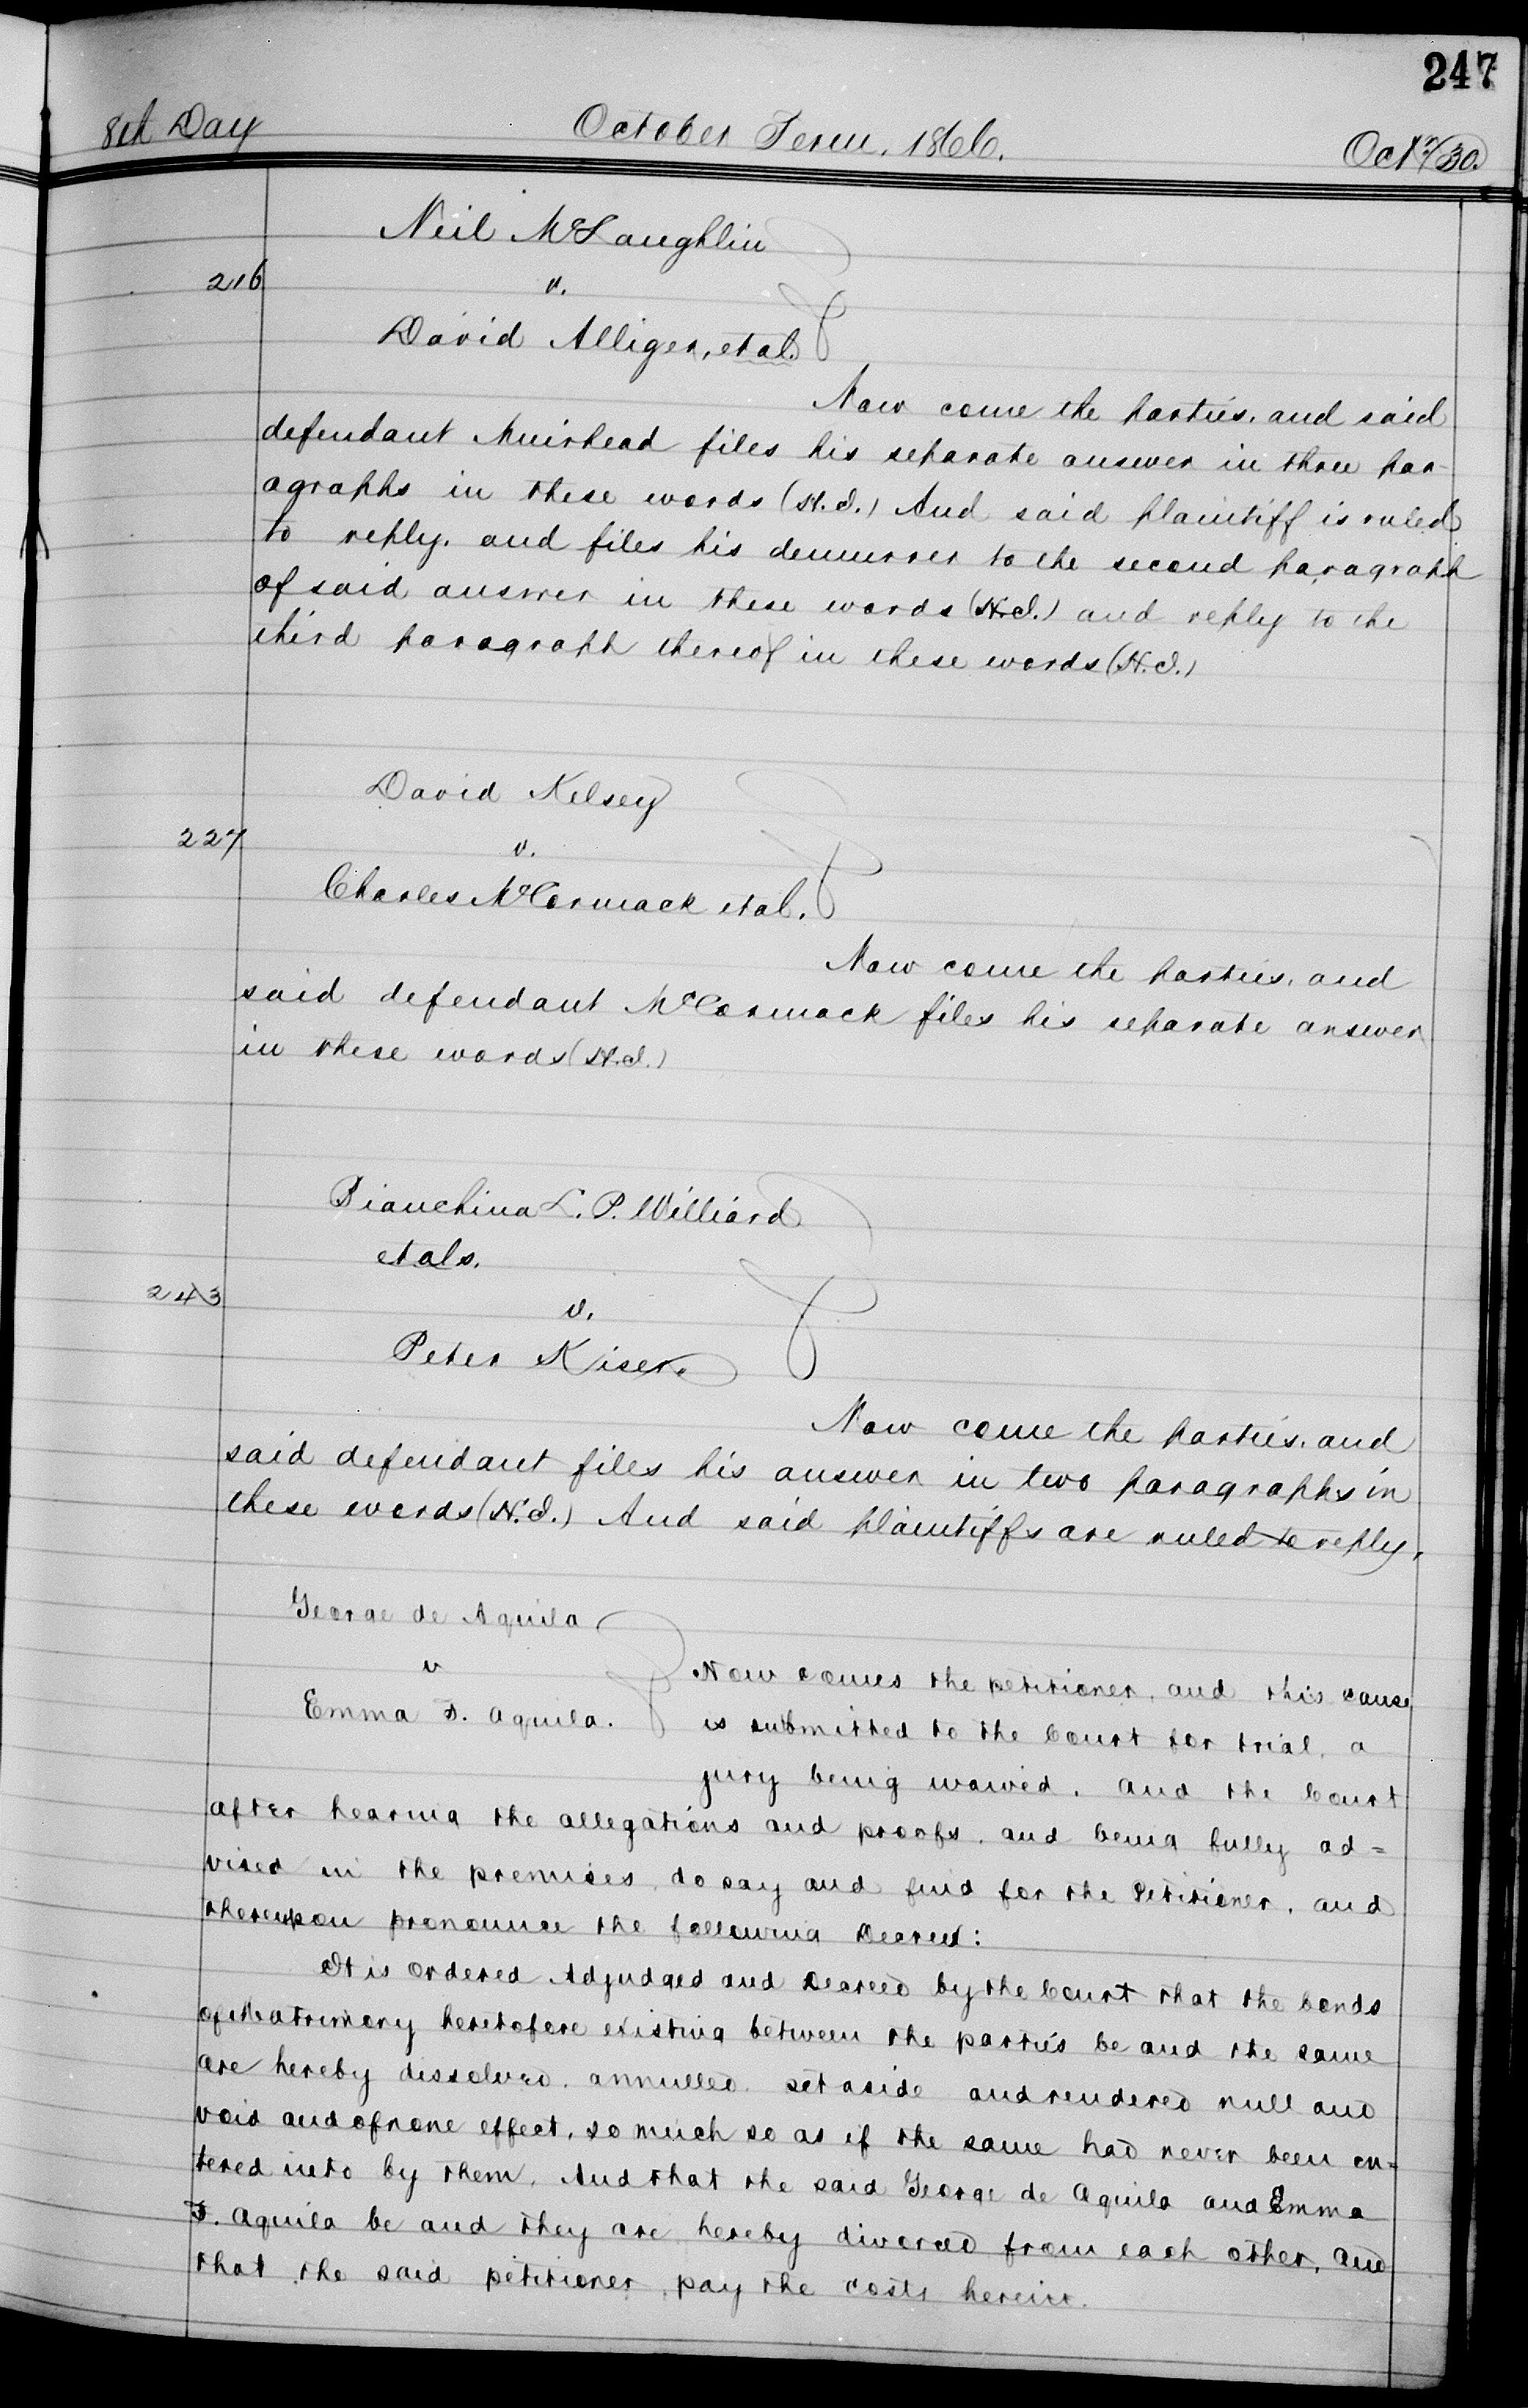 247
8th Day October Term, 1866. Oct 30.
Neil McLaughlin
216 v.
David Alliger, et al.
Now come the parties, and said
defendant Muirhead files his separate answer in three par-
agraphs in these words (H.I.) And said plaintiff is ruled
to reply, and files his demurrer to the second paragraph
of said answer in these words (H.I.) and reply to the
third paragraph thereof in these words (H.I.)
David Kelsey
227 v.
Charles McCormack et al.
Now come the parties, and
said defendant McCormack files his separate answer
in these words (H.I.)
Bianchina L. P. Williard
et als.
243 v.
Peter Kiser.
Now come the parties, and
said defendant files his answer in two paragraphs in
these words (H.I.) And said plaintiffs are ruled to reply.
George de Aquila
v
Emma F. Aquila.
Now comes the petitioner, and this cause
is submitted to the Court for trial, a
jury being waived. And the Court
after hearing the allegations and proofs, and being fully ad=
vised in the premises, do say and find for the Petitioner, and
thereupon pronounce the following Decree:
It is Ordered Adjudged and Decreed by the Court that the bonds
of Matrimony heretofore existing between the parties be and the same
are hereby dissolved, annulled, set aside and rendered null and
void and of none effect, so much so as if the same had never been en=
tered into by them. And that the said George de Aquila and Emma
F. Aquila be and they are hereby divorced from each other, And
that the said petitioner pay the costs herein.